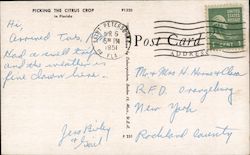 PICKING THE CITRUS CROP
in Florida
P1320
Hi,
Arrived Tues,
Had a swell trip
and the weather is
fine down here.
Jess Bixley
& Gail
ST. PETERSBURG
APR 6
PM
1951
FLA.
Post Card
ADDRESS
Mr & Mrs H. House & Clara
R.F.D. Orangeburg
New York
Rockland County